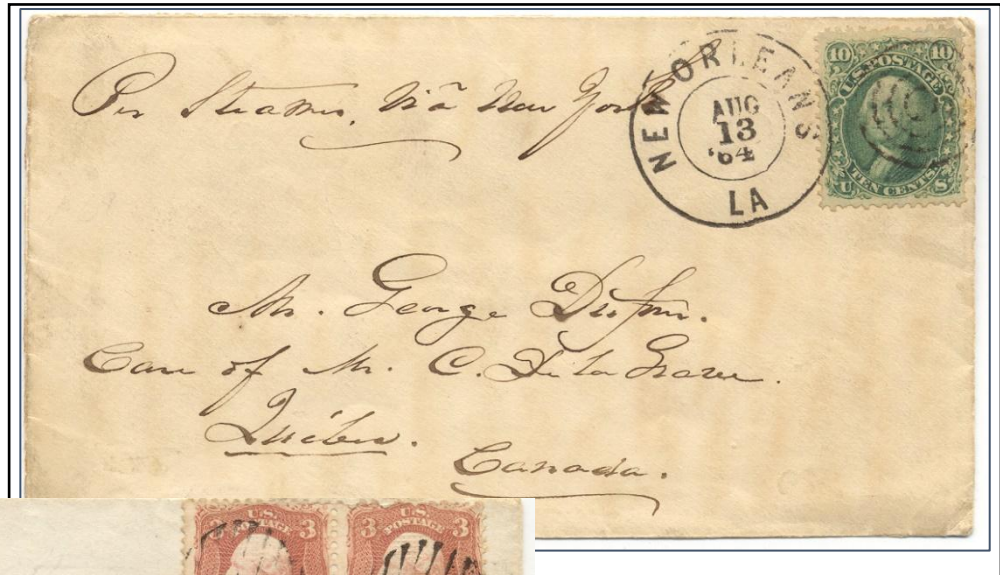 Per Steamer, Viâ New York
NEW ORLEANS
AUG
13
'64
LA
10 10
U.S. POSTAGE
TEN CENTS
U S
Mr. George
Care of Mr. C.
Québec.
Canada.
U.S. 3
POSTAGE
3 U.S. 3
POSTAGE